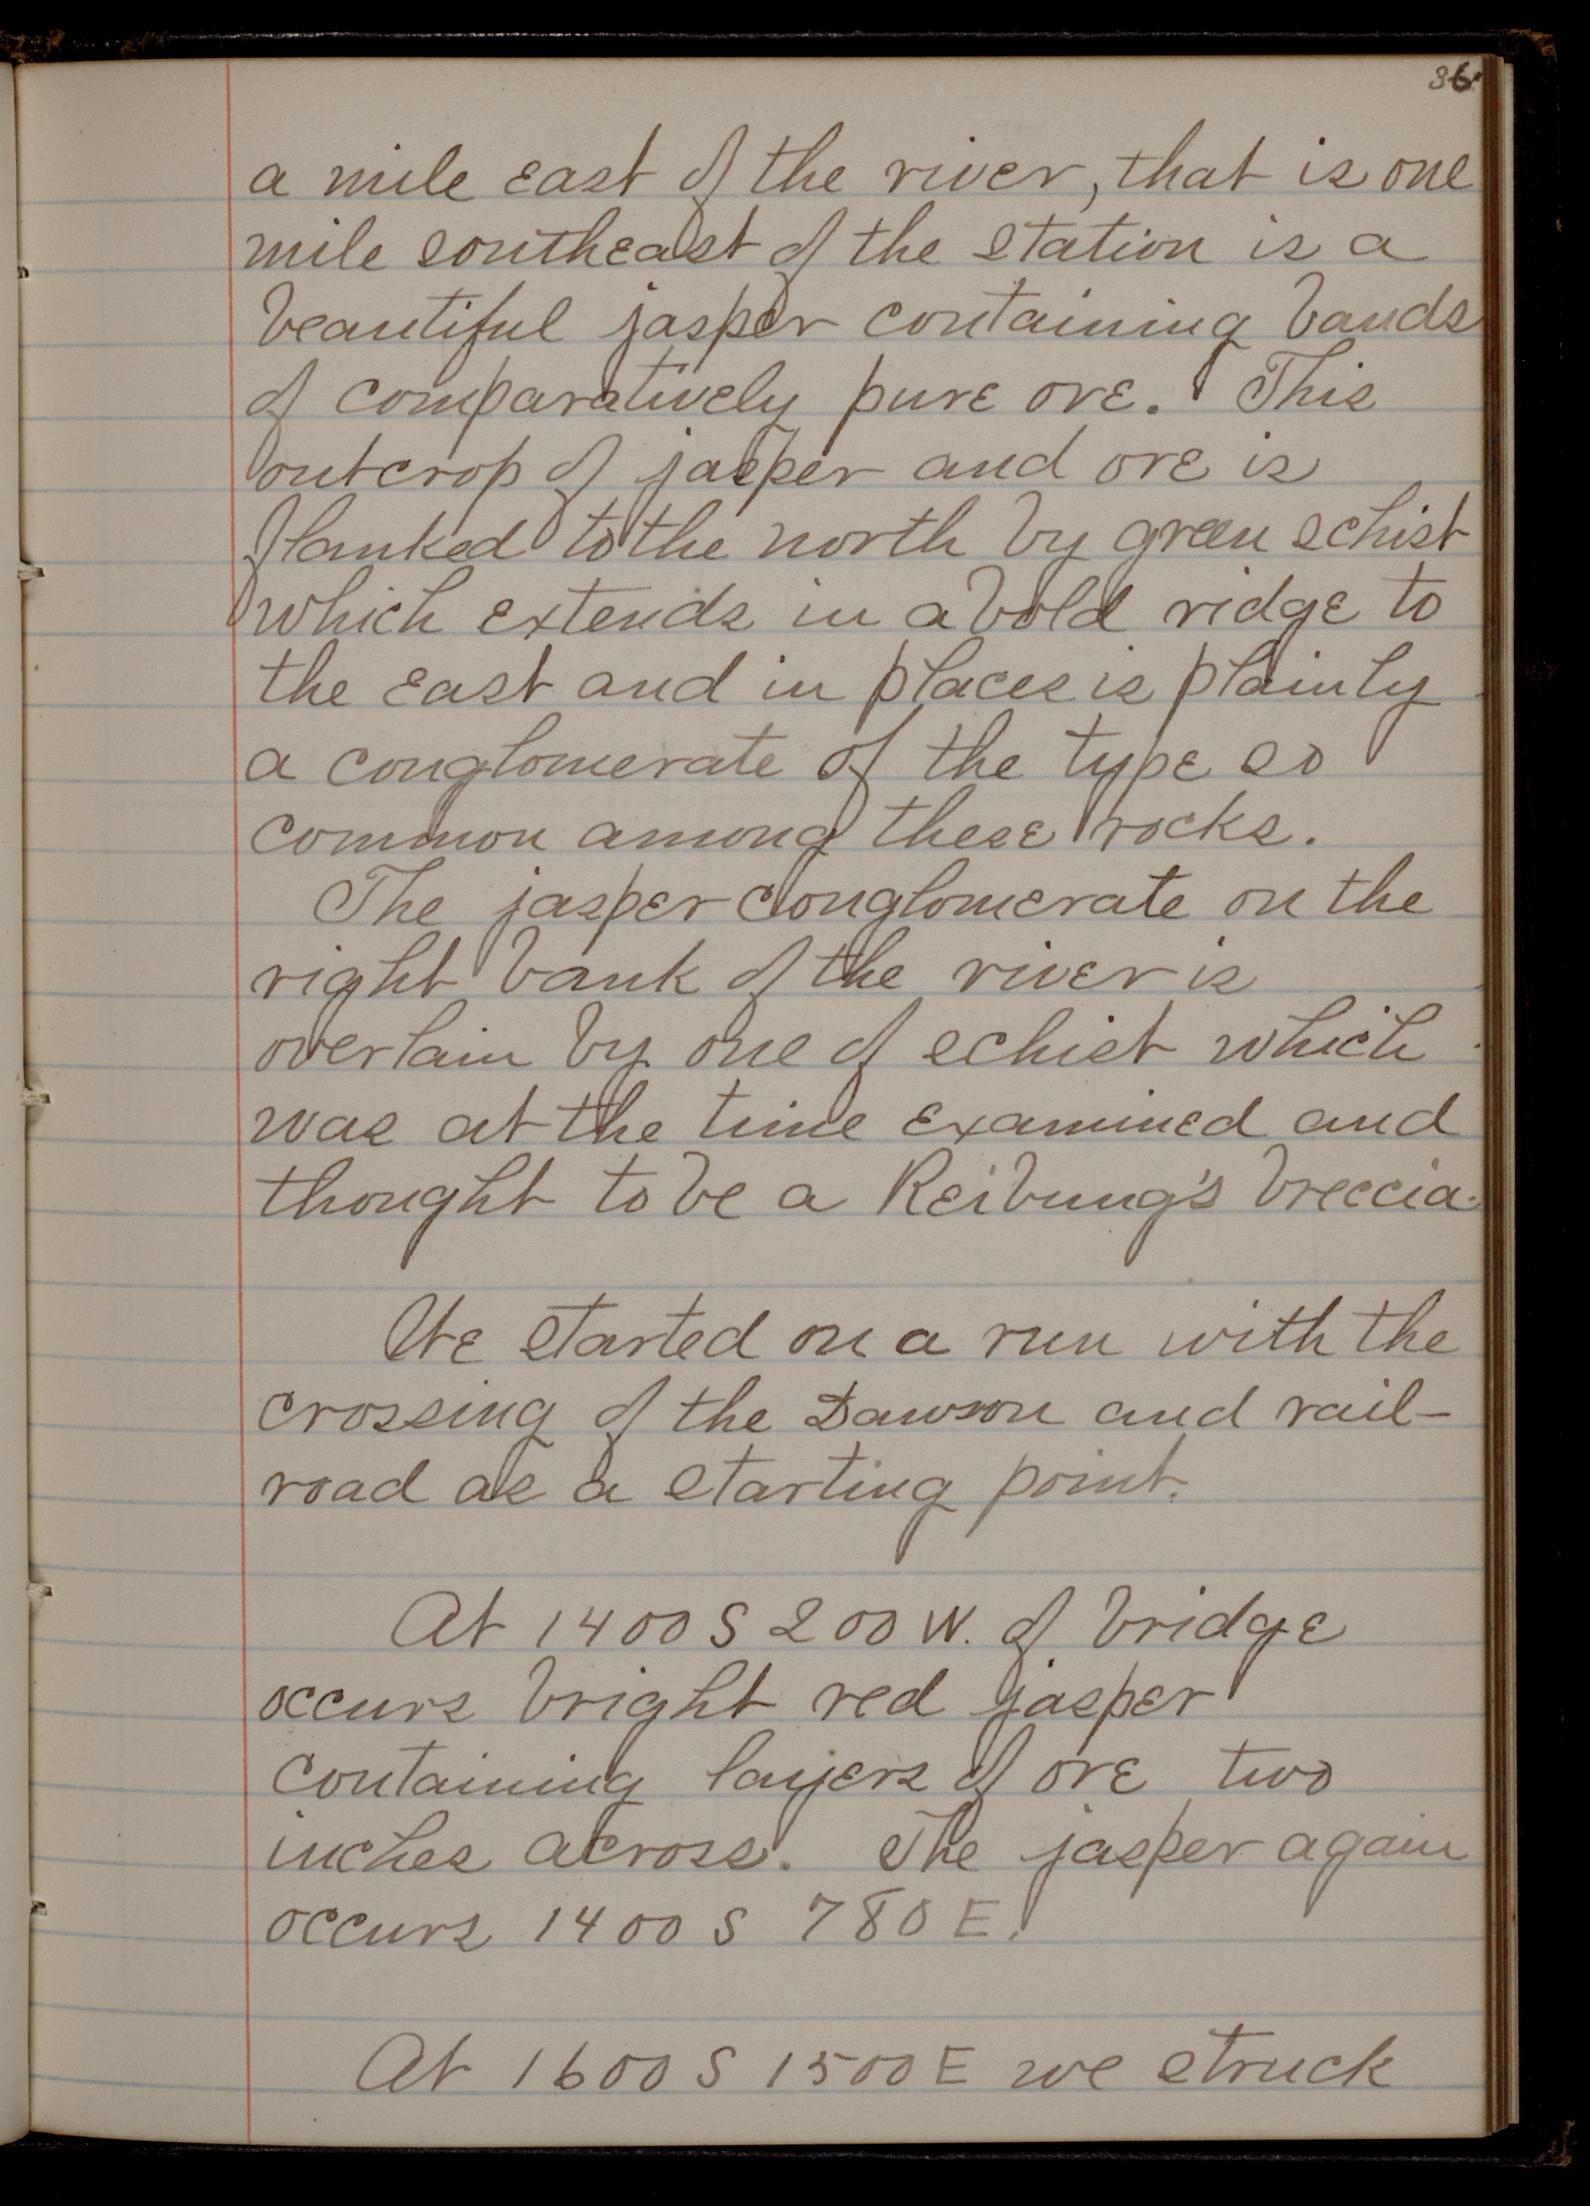 36
a mile east of the river, that is one
mile southeast of the station is a
beautiful jasper containing bands
of comparatively pure ore. This
outcrop of jasper and ore is
flanked to the north by green schist
which extends in a bold ridge to
the east and in places is plainly
a conglomerate of the type so
common among these rocks.
The jasper conglomerate on the
right bank of the river is
overlain by one of schist which
was at the time examined and
thought to be a Reibung's breccia.
We started on a run with the
crossing of the Dawson and rail-
road as a starting point.
At 1400 S 200 W. of bridge
occurs bright red jasper
containing layers of ore two
inches across. The jasper again
occurs 1400 S 780 E.
At 1600 S 1500 E we struck